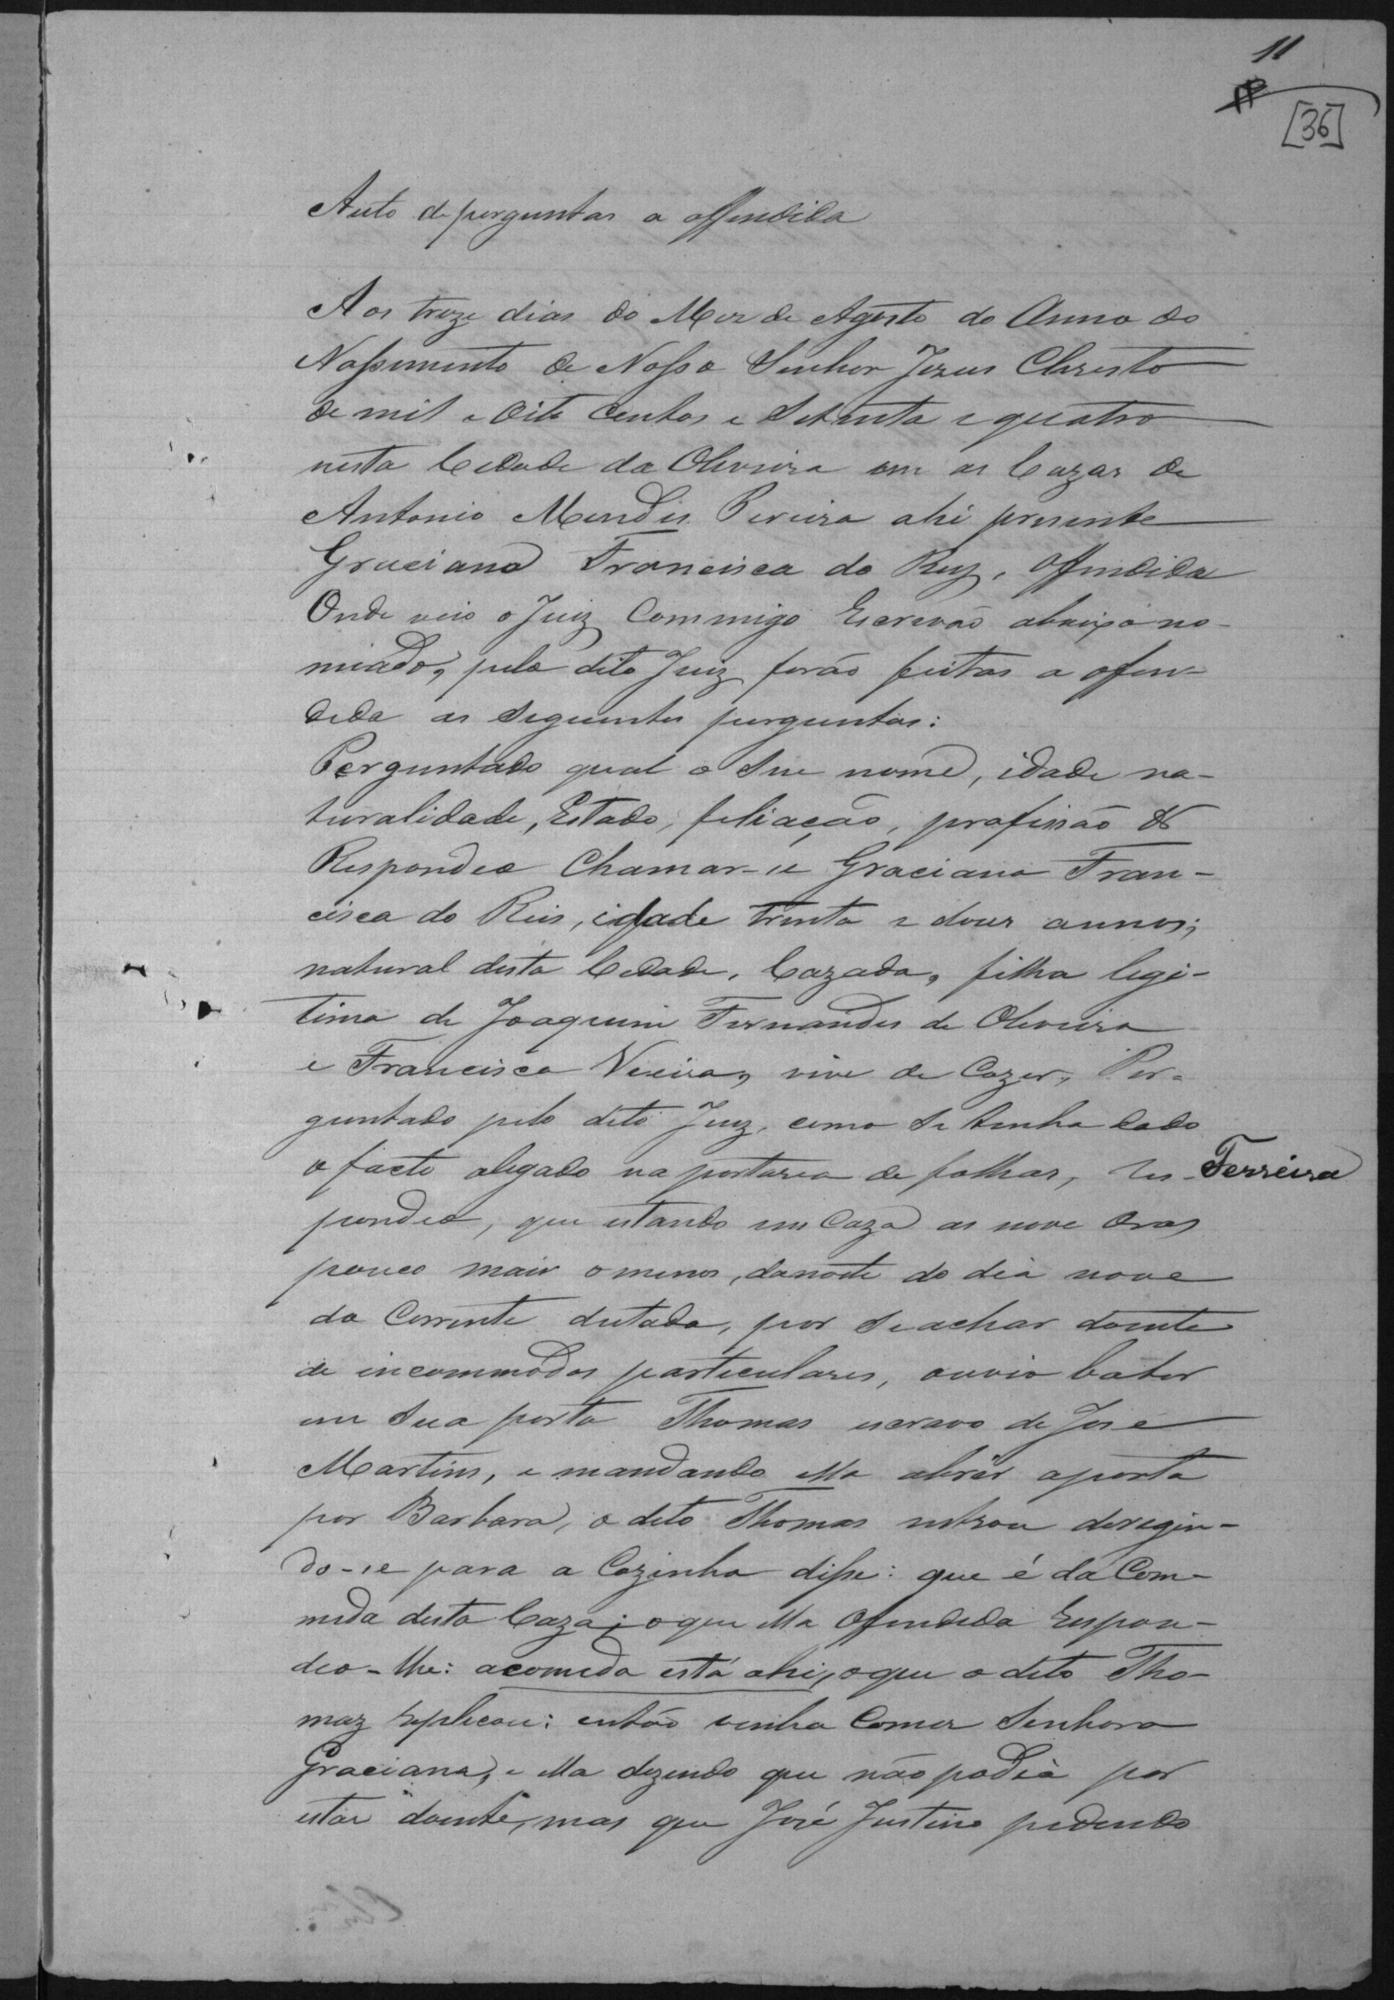 11
[36]
Auto de perguntas a offendida
Aos treze dias do Mez de Agosto do Anno do
Nassimento de Nosso Senhor Jezus Christo
de mil e oito centos e Setenta e quatro
nesta Cidade da Oliveira em as Cazas de
Antonio Mendes Pereira ahi presente
Graciana Francisca do Reiz, offendida
Onde veio o Juiz Commigo Escrevão abaixo no-
miado, pelo dito Juiz forão feitas a offen-
dida as seguintes perguntas:
Perguntado qual o Seu nome, idade na-
turalidade, Estado, feliação, profissão &
Respondeo Chamar-se Graciana Fran-
cisca do Reis, idade trinta e dous annos;
natural desta Cidade, Cazada, filha legi-
tima de Joaquim Fernandes de Oliveira
e Francisca Vieira, vive de Cozer, Per-
guntado pelo dito Juiz, como se tenha dado
o facto alegado na portaria de folhas, Res- Ferreira
pondeo, que estando em Caza as nove Oras
pouco mais o menos, da noite do dia nove
do Corrente deitada, por se achar doente
de incommodos particulares, ouvio bater
em Sua porta Thomas escravo de José
Martins, e mandando ella abrir a porta
por Barbara, o dito Thomas entrou deregin-
do-se para a Cozinha disse: que é da Com-
mida desta Caza; o que ella Offendida Respon-
deo-lhe: a comida está ahi, o que o dito Tho-
maz Replicou: então venha Comer Senhora
Graciana, e ella dizendo que não podia por
estar doente, mas que José Justino podendo